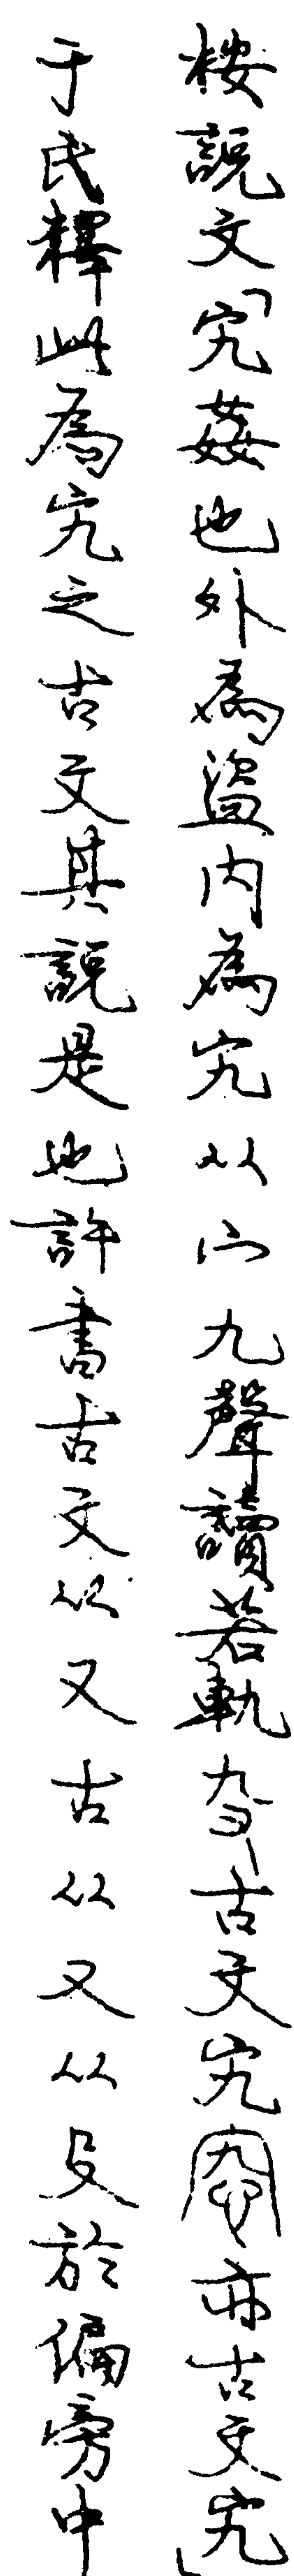 按說文「宄姦也外為盜内為宄从宀九聲讀若軌𡧮古文宄𡪃亦古文宄」
于氏釋此為宄之古文其說是也許書古文从又古从又从殳於偏旁中